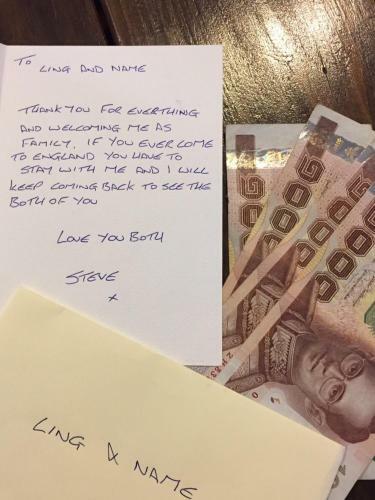 To
LING AND NAME
THANK YOU FOR EVERTHING
AND WELCOMING ME AS
FAMILY, IF YOU EVER COME
TO ENGLAND YOU HAVE TO
STAY WITH ME AND I WILL
KEEP COMING BACK TO SEE THE
BOTH OF YOU
LOVE YOU BOTH
STEVE
x
LING & NAME
1000
1000
1000